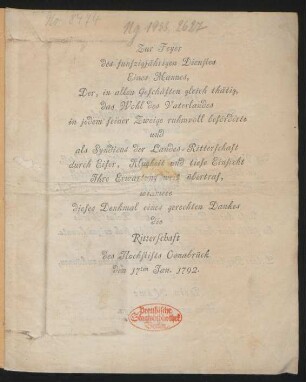 Ng 1936. 2627
Zur Feyer
des funfzigjährigen Dienstes
Eines Mannes,
Der, in allen Geschäften gleich thätig,
das Wohl des Vaterlandes
in jedem seiner Zweige ruhmvoll beförderte
und
als Syndicus der Landes-Ritterschaft
durch Eifer, Klugheit und tiefe Einsicht
Ihre Erwartung weit übertraf,
widmete
dieses Denkmal eines gerechten Dankes
die
Ritterschaft
des Hochstiftes Osnabrück
den 17ten Jan. 1792.
Preußische
Staatsbibliothek
Berlin